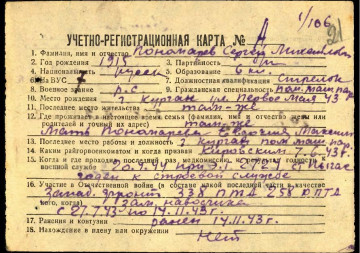 1/106
УЧЕТНО-РЕГИСТРАЦИОННАЯ КАРТА № А
1. Фамилия, имя и отчество Пономарев Сергей Михайлович
2. Год рождения 1915 3. Партийность б/п
4. Национальность русск. 5. Образование 6 кл.
6. № ВУС 7. Должностная квалификация Стрелок
8. Военное звание р.с. 9. Гражданская специальность пом. маш. пар.
10. Место рождения г. Курган ул. Первое Мая 43
11. Последнее место жительства там-же
12. Где проживает в настоящее время семья (фамилия, имя и отчество жены или
родителей и точный их адрес) там-же
Мать Пономарева Евдокия
13. Последнее место работы и должность г. Курган пом. маш. пар.
14. Каким райгорвоенкоматом и когда призван 7.6.43г.
15. Когда и где проходил последний раз медкомиссию, и результат годности к
военной службе 20.4.44 при Э.Г.
годен к строевой службе
16. Участие в Отечественной войне (в составе какой последней части в качестве
кого, когда) Запад. фронт 338 ПТД 258 ОПТД
Зам. наводчика
с 27.7.43 по 14.11.43г.
17. Ранения и контузии ранен 14.11.43г.
18. Нахождение в плену или окружении
Нет